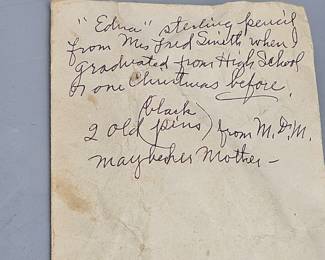 "Edna" sterling pencil
from Mrs Fred Smith when
graduated from High School
or one Christmas before.
(black
2 old pins) from M.D.M.
maybe her Mother –